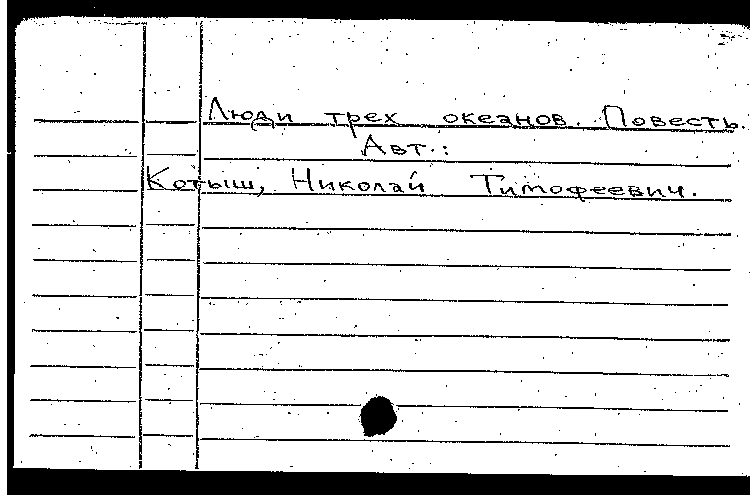 Люди трех океанов. Повесть.
Авт.:
Котыш, Николай Тимофеевич.